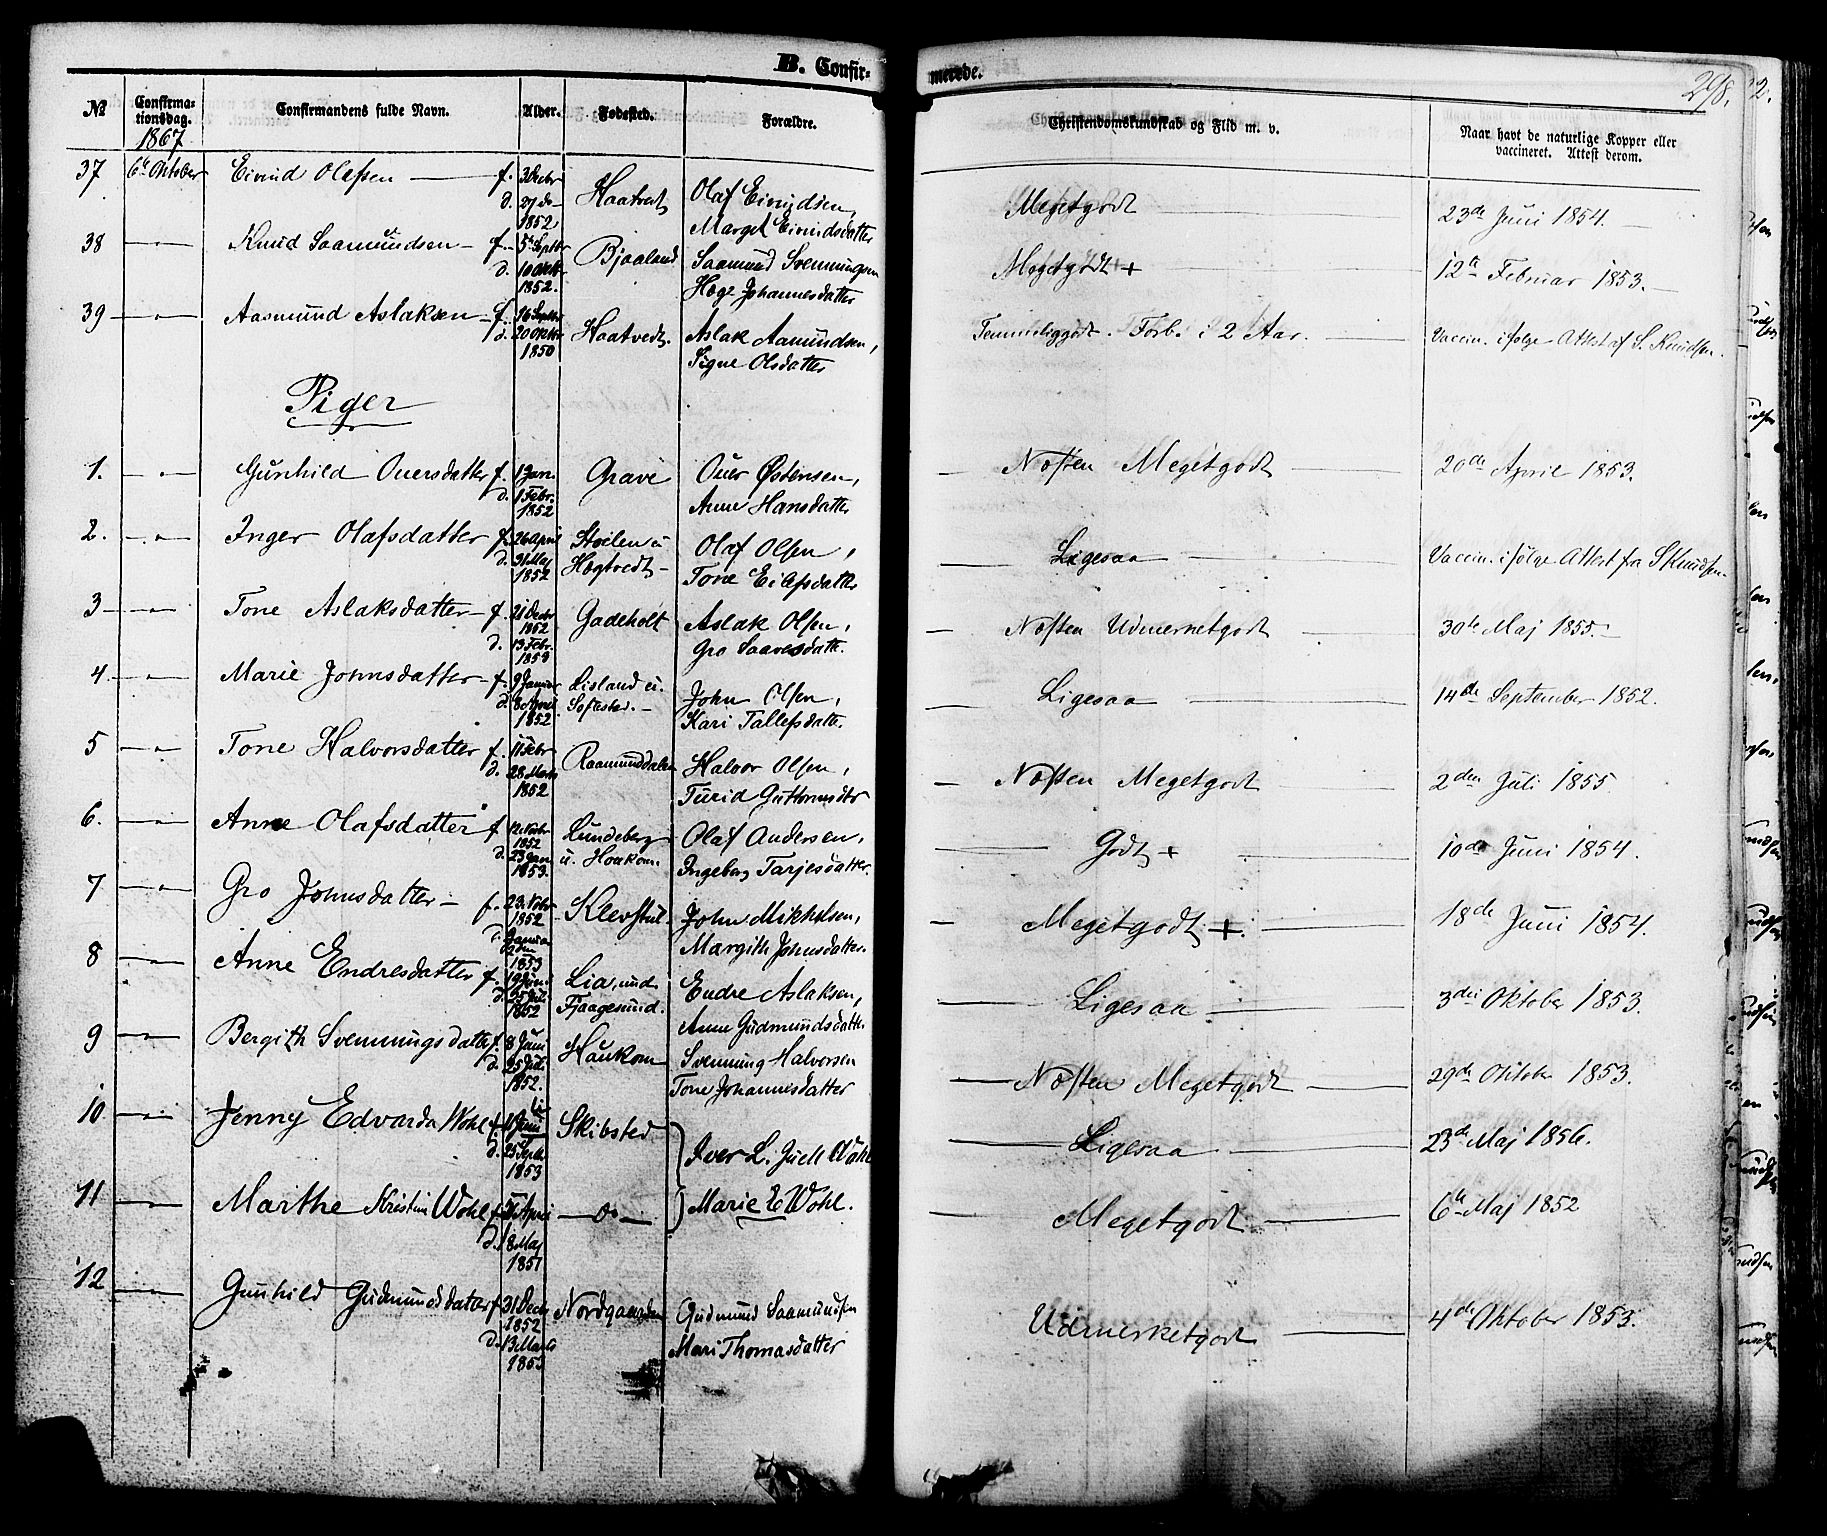 B. Confir-
merede.
298.
№
Confirma-
tionsdag.
1867
Confirmandens fulde Navn.
Alder.
Fødested.
Forældre.
Christendomskundskab og Flid m. v.
Naar havt de naturlige Kopper eller
vaccineret. Attest derom.
37 6te Oktober Eivind Olafsen f. 3 Decbr d. 27 do 1852 Haatvedt Olaf Eivindsen, Margit Eivindsdatter Megetgodt 23de Juni 1854.
38 " Knud Saamundsen f. 5te Septbr d. 10 Oktbr 1852. Bjaaland Saamund Svenningsen Hæge Johannesdatter Megetgodt + 12te Februar 1853.
39 " Aasmund Aslaksen f. 16 Septbr d. 20 Oktbr 1850 Haatvedt. Aslak Aamundsen, Signe Olsdatter Temmeliggodt. Forb. i 2 Aar. Vaccin. ifølge Attest af S. Knudsen.
Piger
1. " Gunhild Ouersdatter f. 1 Jan. d. 1 Febr. 1852 Grave Ouer Østensen, Anne Hansdatter Næsten Megetgodt 20de April 1853.
2. " Inger Olafsdatter f. 26 April d. 31 Maj 1852 Støilen u Høgtvedt Olaf Olsen, Tone Eilefsdatter Ligesaa Vaccin. ifølge Attest fra S Knudsen.
3 " Tone Aslaksdatter f. 21 Decbr 1852 d. 13 Febr. 1853 Gadeholt Aslak Olsen, Gro Saavesdatt. Næsten Udmerketgodt 30te Maj 1855.
4. " Marie Johnsdatter f. 9 Januar d. 8 April 1852 Lisland u. Sofiested. John Olsen, Kari Tallefsdatt. Ligesaa 14de September 1852.
5 " Tone Halvorsdatter f. 11 Febr d. 28 Marts 1852 Raamunddalen Halvor Olsen, Turid Guttormsdtr Næsten Megetgodt 2den Juli 1855
6. " Anne Olafsdatter f 12 Novbr 1852 d. 23 Jan 1853. Lundeberg u. Haukom. Olaf Andersen, Ingeborg Tarjesdatter. Godt + 10de Juni 1854.
7 " Gro Johnsdatter f. 23. Nobr 1852 Januar 1853 Klevstul John Mikkelsen, Margith Johnsdatter. Megetgodt + 18de Juni 1854.
8 " Anne Endresdatter f. 19 Juni d. 1852 Lia, und Fjaagesund. Endre Aslaksen, Anne Gudmundsdatt. Ligesaa 3die Oktober 1853.
9 " Bergith Svenningsdatter f. 8 Juni d. 25 Juli 1852. Haukom Svenning Halvorsen Tone Johannesdatter Næsten Megetgodt 29de Oktober 1853.
10. " Jenny Edvarda Wohl f. d. 25 Septbr 1853 Skibsted Iver L. Wohl Ligesaa 23de Maj 1856.
11 " Marthe Kristine Wohl f. April d. 18 Maj 1851 do Marie E Wohl. Megetgodt 6te Maj 1852
12 " Gunhild Gudmundsdatter f 31 Decbr 1852 d. 13 Marts 1853 Nordgaarden Gudmund Saamundsen Mari Thomasdatter Udmerketgodt 4de Oktober 1853.